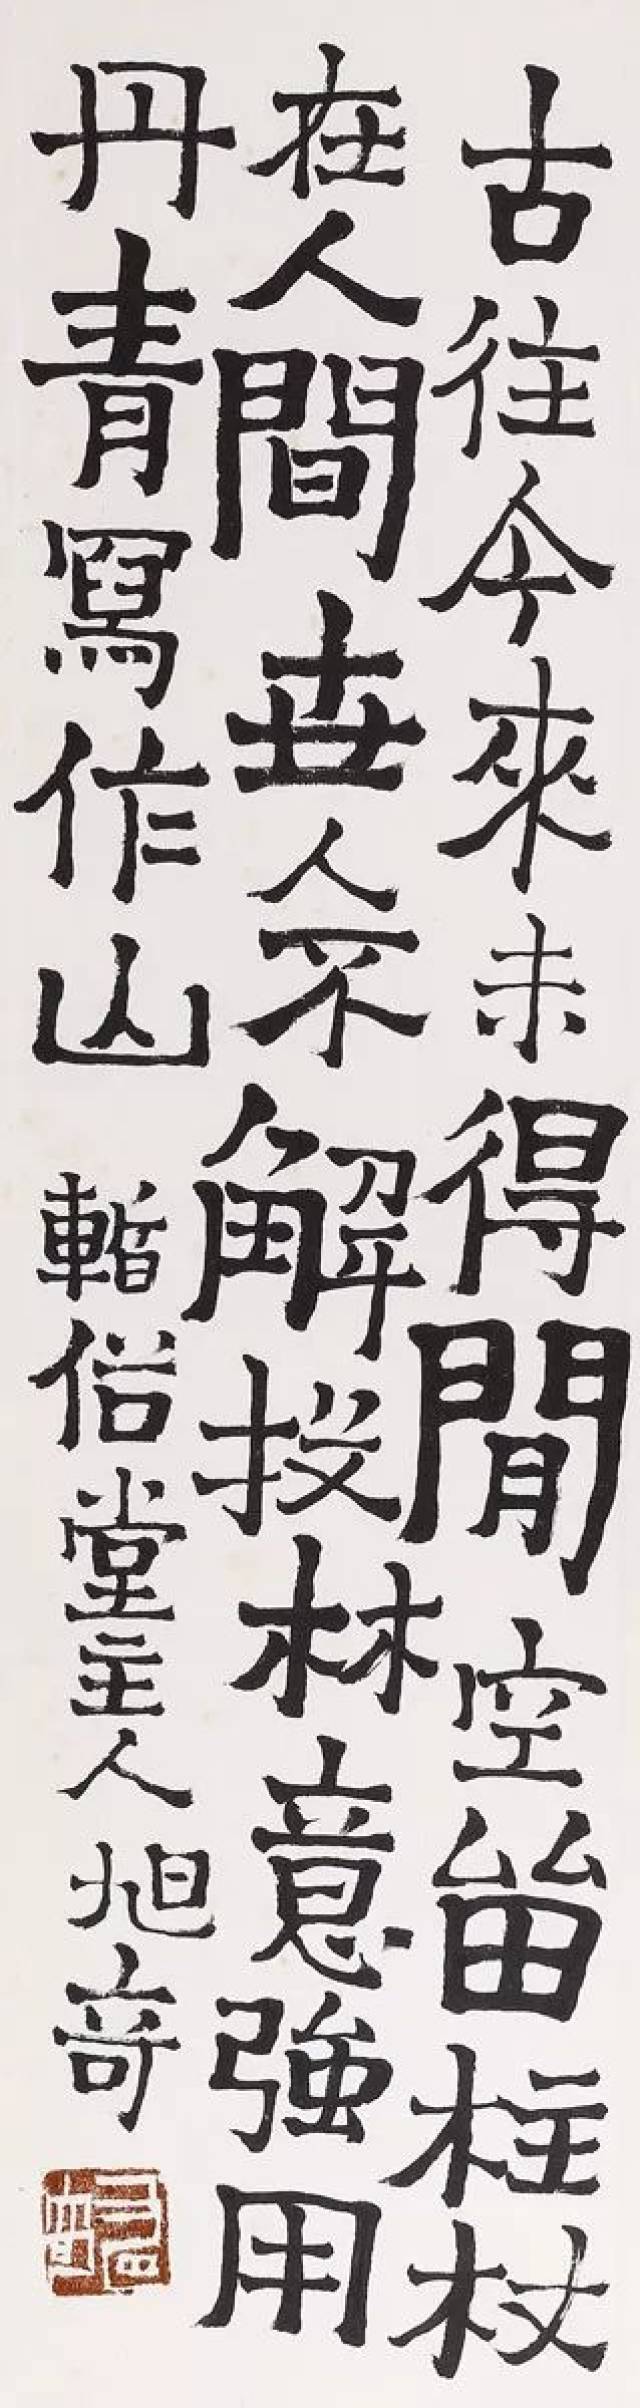 古往今來未得閒空留柱杖
在人間世人不解投林意強用
丹青寫作山 暫俗堂主人旭奇